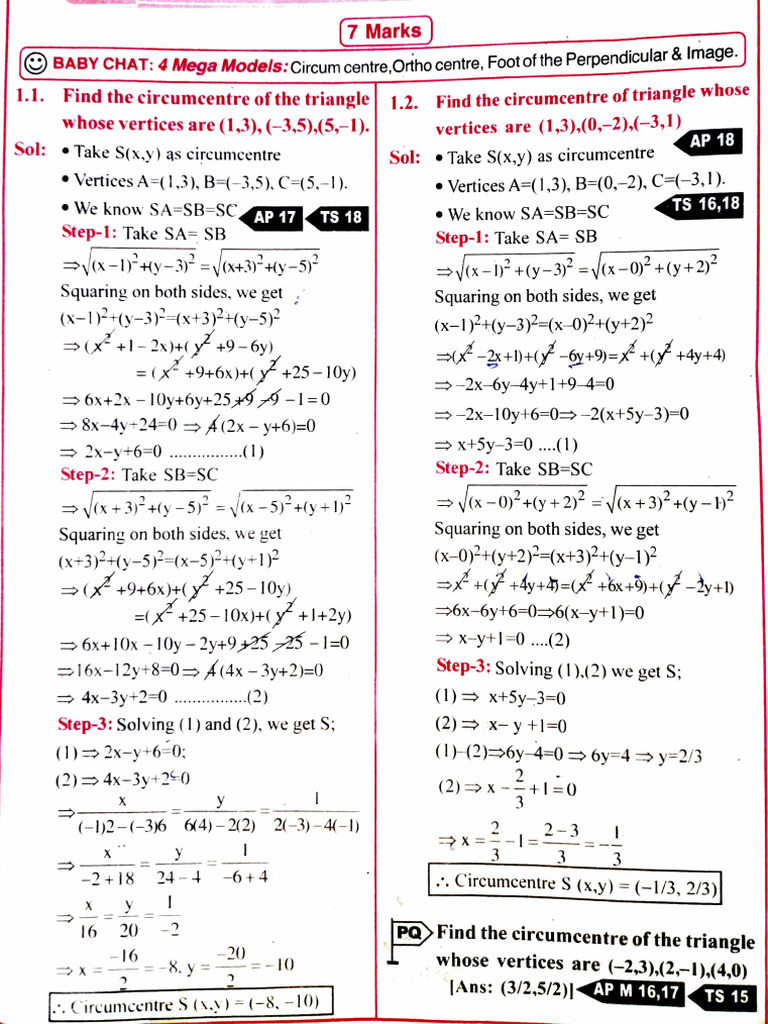 7 Marks
BABY CHAT: 4 Mega Models: Circum centre,Ortho centre, Foot of the Perpendicular & Image.
1.1. Find the circumcentre of the triangle
whose vertices are (1,3), (−3,5),(5,−1).
Sol: • Take S(x,y) as circumcentre
• Vertices A=(1,3), B=(−3,5), C=(5,−1).
• We know SA=SB=SC AP 17 TS 18
Step-1: Take SA= SB
⇒√((x−1)²+(y−3)²) =√((x+3)²+(y−5)²)
Squaring on both sides, we get
(x−1)²+(y−3)²=(x+3)²+(y−5)²
⇒(x²+1−2x)+(y²+9−6y)
= (x²+9+6x)+(y²+25−10y)
⇒ 6x+2x − 10y+6y+25+9−9−1=0
⇒ 8x−4y+24=0 ⇒ 4(2x − y+6)=0
⇒ 2x−y+6=0 ................(1)
Step-2: Take SB=SC
⇒√((x+3)²+(y−5)²) = √((x−5)²+(y+1)²)
Squaring on both sides, we get
(x+3)²+(y−5)²=(x−5)²+(y+1)²
⇒(x²+9+6x)+(y²+25−10y)
=(x²+25−10x)+(y²+1+2y)
⇒ 6x+10x − 10y − 2y+9+25−25−1=0
⇒16x−12y+8=0⇒ 4(4x − 3y+2)=0
⇒ 4x−3y+2=0 ................(2)
Step-3: Solving (1) and (2), we get S;
(1)⇒ 2x−y+6=0;
(2)⇒ 4x−3y+2=0
⇒ x/((−1)2−(−3)6) = y/(6(4)−2(2)) = 1/(2(−3)−4(−1))
⇒ x/(−2+18) = y/(24−4) = 1/(−6+4)
⇒ x/16 = y/20 = 1/−2
⇒ x = −16/2 = −8, y = −20/2 = −10
∴ Circumcentre S (x,y) = (−8, −10)
1.2. Find the circumcentre of triangle whose
vertices are (1,3),(0,−2),(−3,1)
AP 18
Sol: • Take S(x,y) as circumcentre
• Vertices A=(1,3), B=(0,−2), C=(−3,1).
• We know SA=SB=SC TS 16,18
Step-1: Take SA= SB
⇒√((x−1)²+(y−3)²) =√((x−0)²+(y+2)²)
Squaring on both sides, we get
(x−1)²+(y−3)²=(x−0)²+(y+2)²
⇒(x²−2x+1)+(y²−6y+9)=x²+(y²+4y+4)
⇒ −2x−6y−4y+1+9−4=0
⇒ −2x−10y+6=0⇒ −2(x+5y−3)=0
⇒ x+5y−3=0 ....(1)
Step-2: Take SB=SC
⇒√((x−0)²+(y+2)²) =√((x+3)²+(y−1)²)
Squaring on both sides, we get
(x−0)²+(y+2)²=(x+3)²+(y−1)²
⇒x²+(y²+4y+4)=(x²+6x+9)+(y²−2y+1)
⇒6x−6y+6=0⇒6(x−y+1)=0
⇒ x−y+1=0 ....(2)
Step-3: Solving (1),(2) we get S;
(1)⇒ x+5y−3=0
(2)⇒ x− y +1=0
(1)−(2)⇒6y−4=0 ⇒ 6y=4 ⇒ y=2/3
(2)⇒ x − 2/3 +1=0
⇒ x = 2/3 −1 = (2−3)/3 = −1/3
∴ Circumcentre S (x,y) = (−1/3, 2/3)
PQ Find the circumcentre of the triangle
whose vertices are (−2,3),(2,−1),(4,0)
[Ans: (3/2,5/2)] AP M 16,17 TS 15